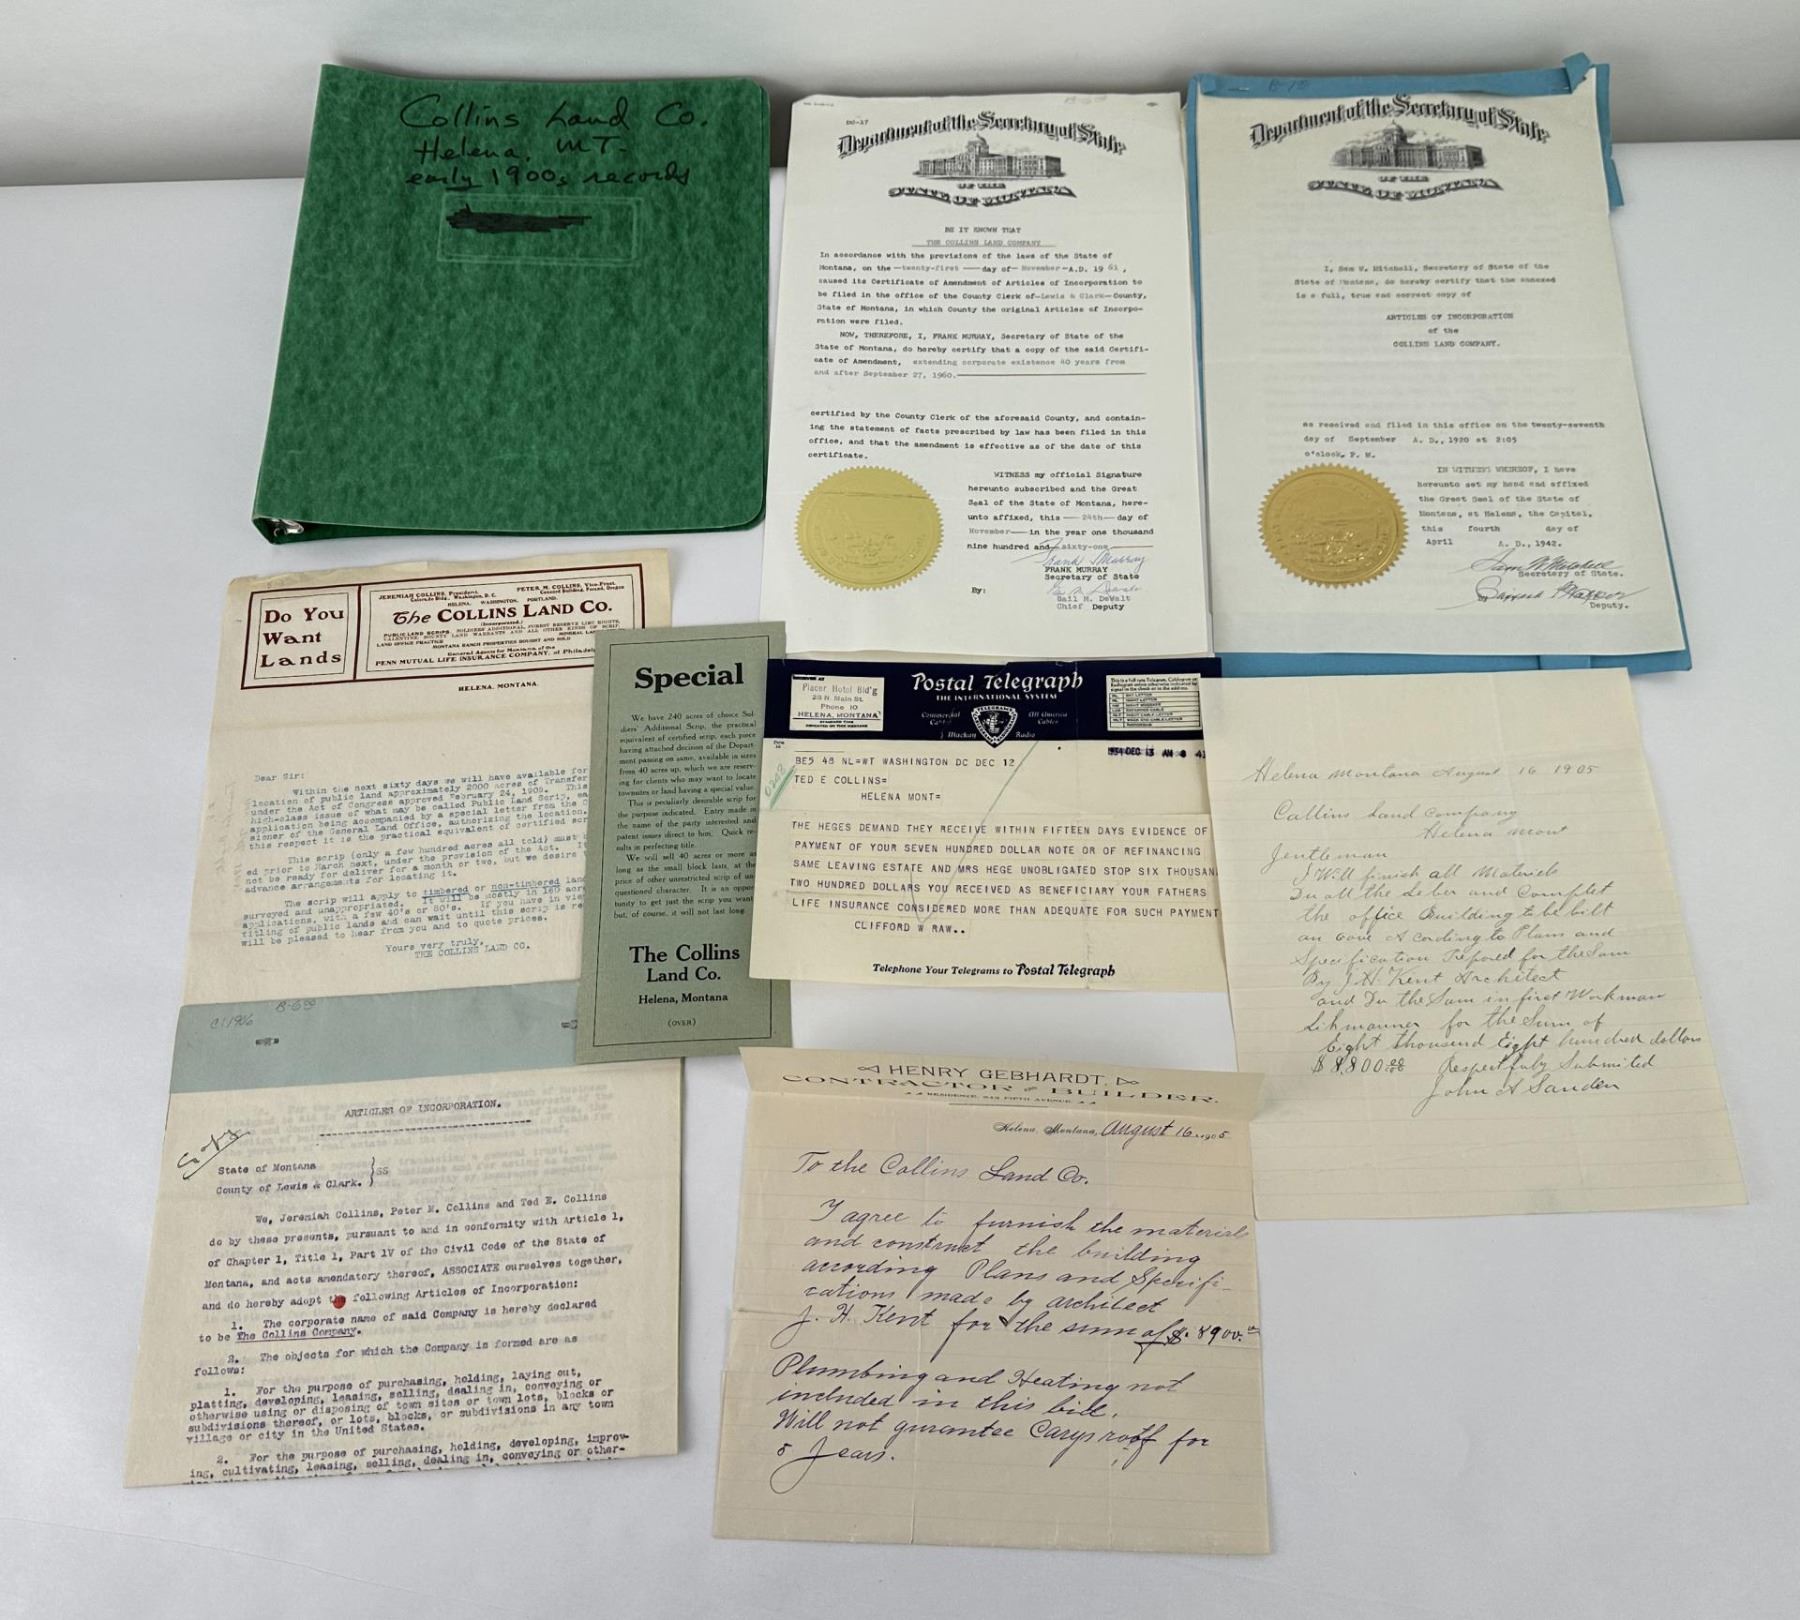 Collins Land Co.
Helena, MT-
early 1900s records
DO-17
Department of the Secretary of State
OF THE
STATE OF MONTANA
BE IT KNOWN THAT
THE COLLINS LAND COMPANY
In accordance with the provisions of the laws of the State of
Montana, on the —twenty-first —day of— November—A.D. 1961,
caused its Certificate of Amendment of Articles of Incorporation to
be filed in the office of the County Clerk of—Lewis & Clark—County,
State of Montana, in which County the original Articles of Incorpo-
ration were filed.
NOW, THEREFORE, I, FRANK MURRAY, Secretary of State of the
State of Montana, do hereby certify that a copy of the said Certifi-
cate of Amendment, extending corporate existence 40 years from
and after September 27, 1960.
certified by the County Clerk of the aforesaid County, and contain-
ing the statement of facts prescribed by law has been filed in this
office, and that the amendment is effective as of the date of this
certificate.
WITNESS my official Signature
hereunto subscribed and the Great
Seal of the State of Montana, here-
unto affixed, this — 24th— day of
November— in the year one thousand
nine hundred and sixty-one
Frank Murray
FRANK MURRAY
Secretary of State
By:
Gail M. DeWalt
Chief Deputy
Department of the Secretary of State
OF THE
STATE OF MONTANA
I, Sam W. Mitchell, Secretary of State of the
State of Montana, do hereby certify that the annexed
is a full, true and correct copy of
ARTICLES OF INCORPORATION
of the
COLLINS LAND COMPANY.
as received and filed in this office on the twenty-seventh
day of September A. D., 1920 at 2:05
o'clock, P. M.
IN WITNESS WHEREOF, I have
hereunto set my hand and affixed
the Great Seal of the State of
Montana, at Helena, the Capital,
this fourth day of
April A. D., 1942.
Sam W Mitchell
Secretary of State.
Deputy.
Do You
Want
Lands
JEREMIAH COLLINS, President,
Colorado Bldg., Washington, D. C.
PETER M. COLLINS, Vice-Prest.
Concord Building, Portland, Oregon
HELENA. WASHINGTON. PORTLAND.
The COLLINS LAND CO.
(Incorporated)
PUBLIC LAND SCRIPS, SOLDIERS' ADDITIONAL, FOREST RESERVE LIEU RIGHTS,
VALENTINE, BOUNTY LAND WARRANTS AND ALL OTHER KINDS OF SCRIP.
LAND OFFICE PRACTICE
MONTANA RANCH PROPERTIES BOUGHT AND SOLD
General Agents for Montana of the
PENN MUTUAL LIFE INSURANCE COMPANY, of Philadel
HELENA, MONTANA.
Dear Sir:
Within the next sixty days we will have available for
location of public land approximately 2000 acres of Transfer
under the Act of Congress approved February 24, 1905. This
high-class issue of what may be called Public Land Scrip, ea
application being accompanied by a special letter from the C
sioner of the General Land Office, authorizing the location.
this respect it is the practical equivalent of certified scr
This scrip (only a few hundred acres all told) must b
ed prior to March next, under the provision of the Act. I
not be ready for deliver for a month or two, but we desire
advance arrangements for locating it.
The scrip will apply to timbered or non-timbered land
surveyed and unappropriated. It will be mostly in 160 acre
applications, with a few 40's or 80's. If you have in vie
titling of public lands and can wait until this scrip is re
will be pleased to hear from you and to quote prices.
Yours very truly,
THE COLLINS LAND CO.
Special
We have 240 acres of choice Sol-
diers' Additional Scrip, the practical
equivalent of certified scrip, each piece
having attached decision of the Depart-
ment passing on same, available in sizes
from 40 acres up, which we are reserv-
ing for clients who may want to locate
townsites or land having a special value.
This is peculiarly desirable scrip for
the purpose indicated. Entry made in
the name of the party interested and
patent issues direct to him. Quick re-
sults in perfecting title.
We will sell 40 acres or more as
long as the small block lasts, at the
price of other unrestricted scrip of un-
questioned character. It is an oppor-
tunity to get just the scrip you want
but, of course, it will not last long.
The Collins
Land Co.
Helena, Montana
(OVER)
Placer Hotel Bld'g
28 N. Main St.
Phone 10
HELENA, MONTANA
Postal Telegraph
THE INTERNATIONAL SYSTEM
Commercial
Cables
All America
Cables
Mackay Radio
1934 DEC 13 AM 8 4
BE5 48 NL=WT WASHINGTON DC DEC 12
TED E COLLINS=
HELENA MONT=
THE HEGES DEMAND THEY RECEIVE WITHIN FIFTEEN DAYS EVIDENCE OF
PAYMENT OF YOUR SEVEN HUNDRED DOLLAR NOTE OR OF REFINANCING
SAME LEAVING ESTATE AND MRS HEGE UNOBLIGATED STOP SIX THOUSAN
TWO HUNDRED DOLLARS YOU RECEIVED AS BENEFICIARY YOUR FATHERS
LIFE INSURANCE CONSIDERED MORE THAN ADEQUATE FOR SUCH PAYMENT
CLIFFORD W RAW..
Telephone Your Telegrams to Postal Telegraph
Helena Montana August 16 1905
Collins Land Company
Helena Mont
Jentleman
I Will finish all Materials
Du all the Leber and Complet
the office Building to be bilt
on Gove Acording to Plans and
Specification Prepored for the Sam
By J H Kent Architect
and Du the Sam in first Workman
Likmanner for the Sum of
Eight thousend Eight hundred dollars
$ 8,800 00 Respectfuly Submitted
John A Sanden
C: 1906
B-600
ARTICLES OF INCORPORATION.
Copy
State of Montana
County of Lewis & Clark. } SS
We, Jeremiah Collins, Peter M. Collins and Ted E. Collins
do by these presents, pursuant to and in conformity with Article 1,
of Chapter 1, Title 1, Part IV of the Civil Code of the State of
Montana, and acts amendatory thereof, ASSOCIATE ourselves together,
and do hereby adopt the following Articles of Incorporation:
1. The corporate name of said Company is hereby declared
to be The Collins Company.
2. The objects for which the Company is formed are as
follows:
1. For the purpose of purchasing, holding, laying out,
platting, developing, leasing, selling, dealing in, conveying or
otherwise using or disposing of town sites or town lots, blocks or
subdivisions thereof, or lots, blocks, or subdivisions in any town
village or city in the United States.
2. For the purpose of purchasing, holding, developing, improv-
ing, cultivating, leasing, selling, dealing in, conveying or other-
HENRY GEBHARDT,
CONTRACTOR AND BUILDER.
RESIDENCE, 849 FIFTH AVENUE.
Helena, Montana, August 16 1905
To the Collins Land Co.
I agree to furnish the materials
and construct the building
according Plans and Specifi-
cations made by architect
J. H. Kent for the sum of $. 8900.00
Plumbing and Heating not
included in this bid.
Will not gurantee Carys roof for
5 Jears.